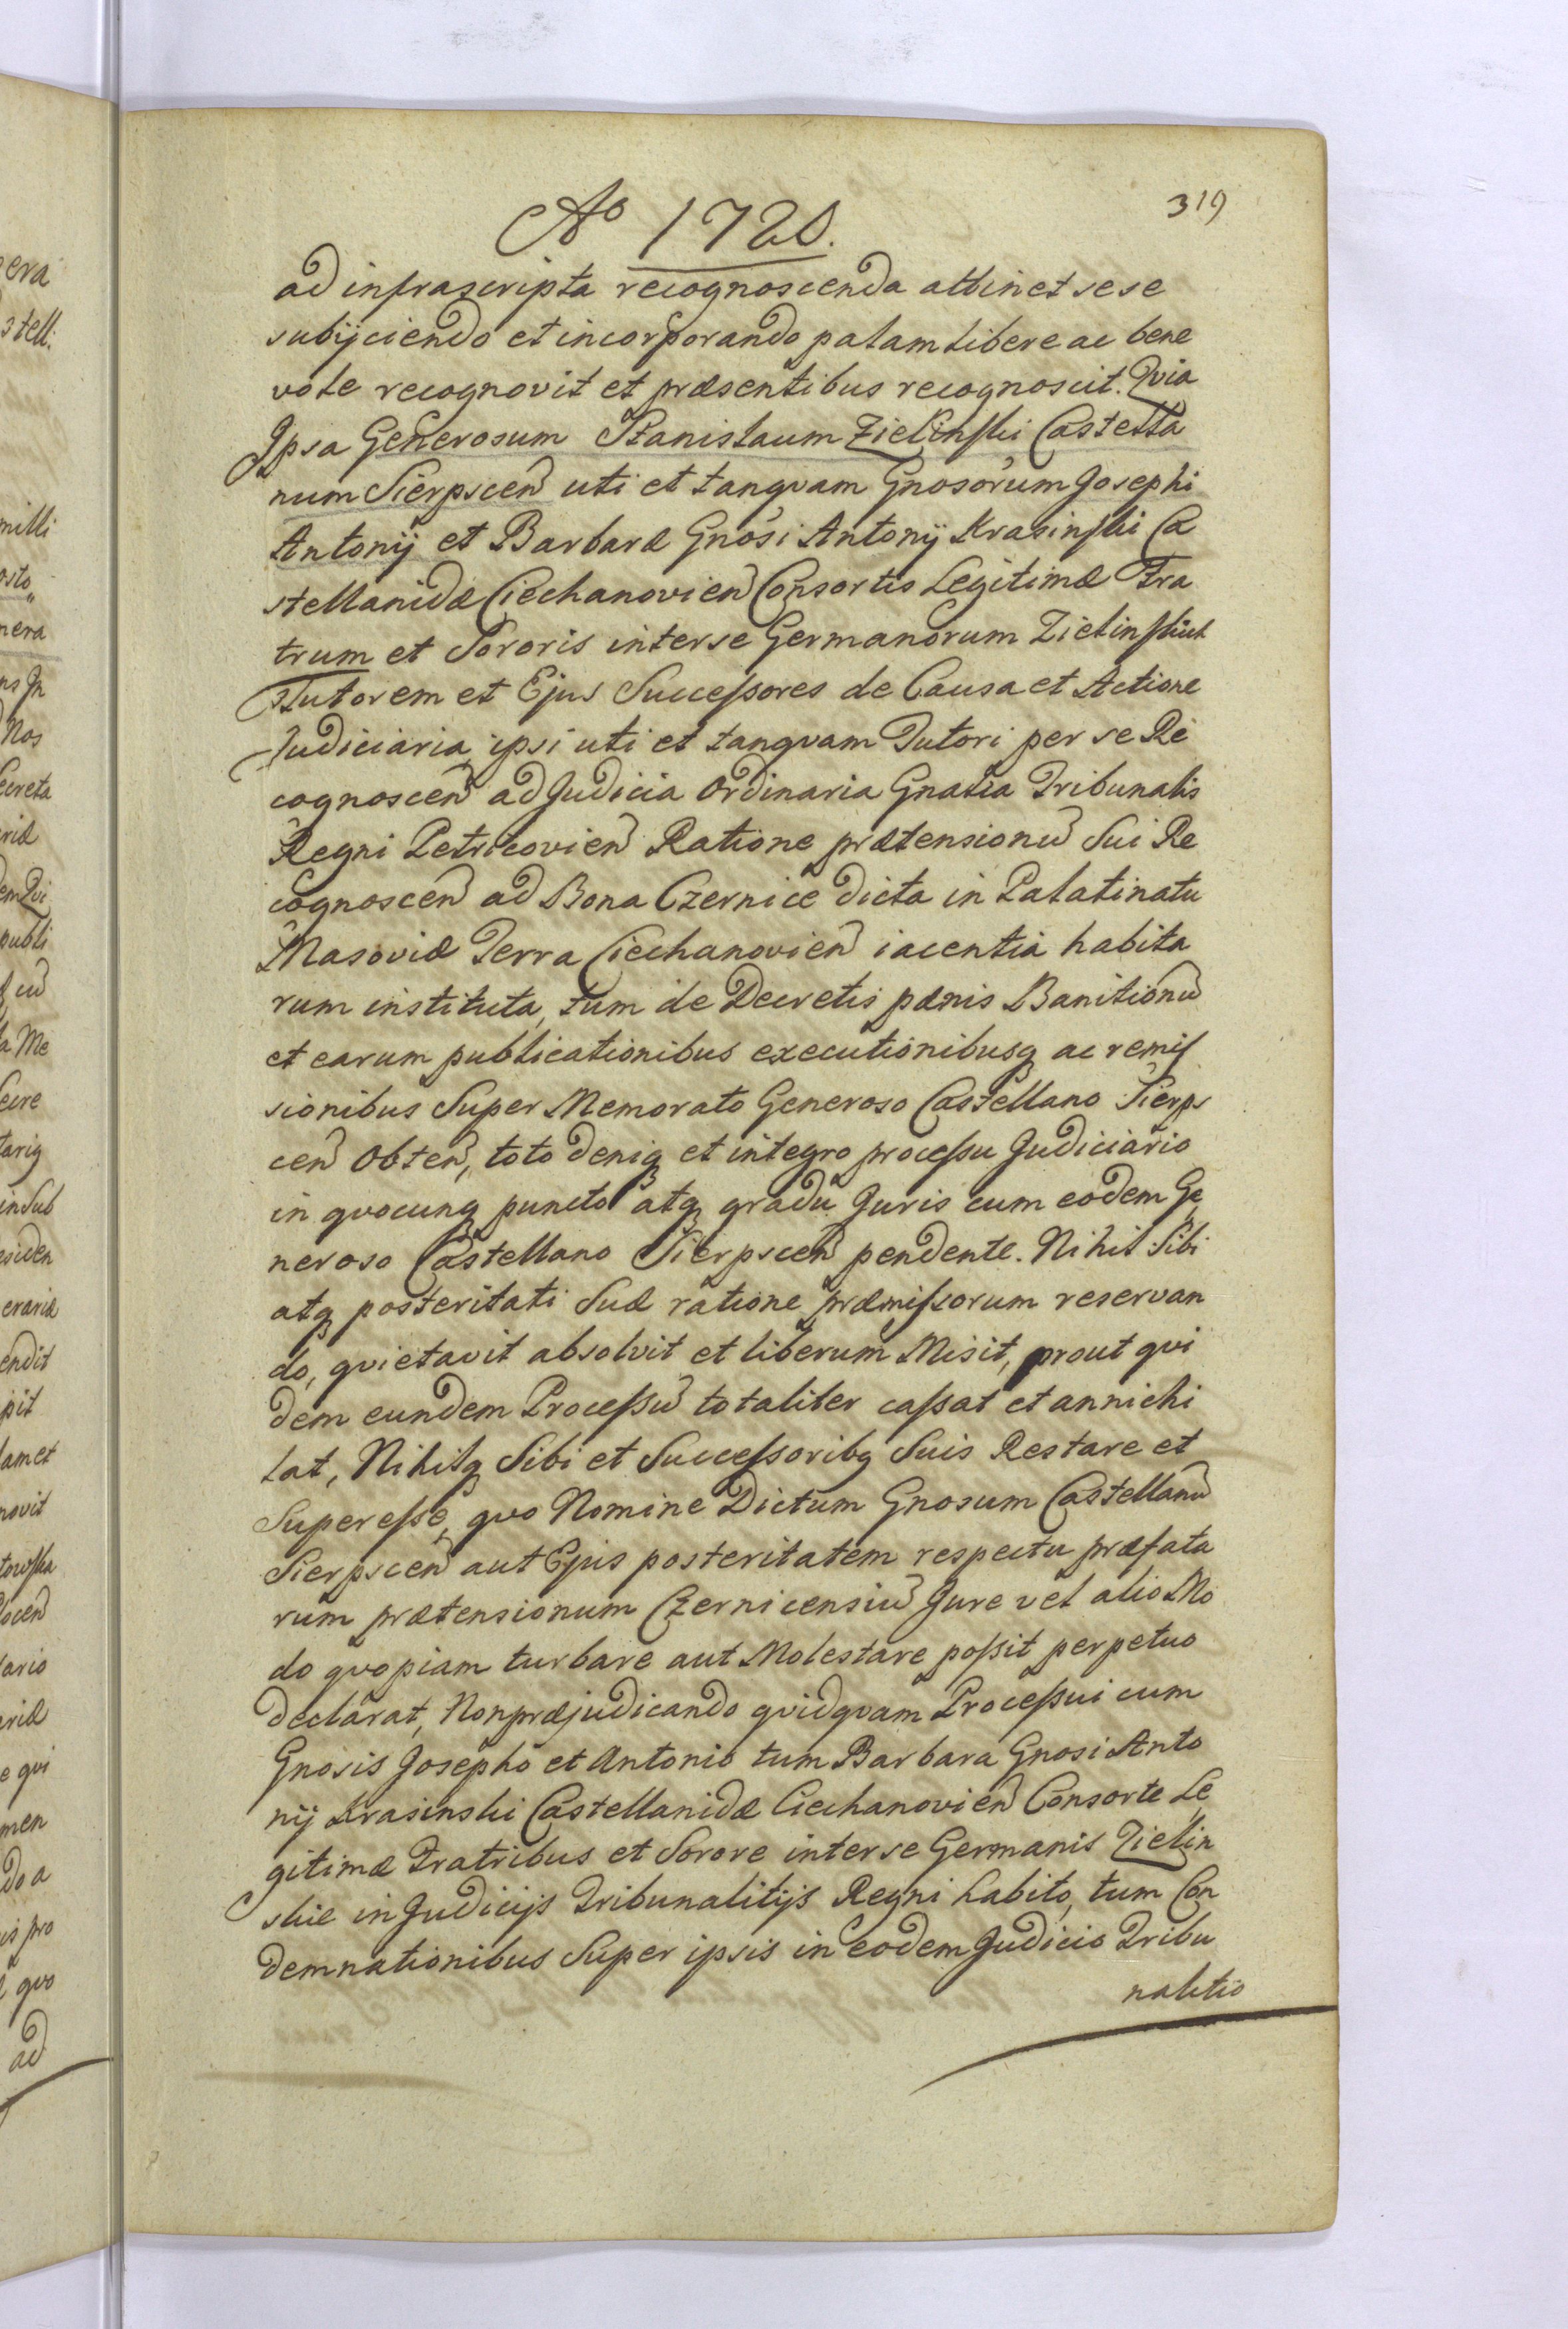 319
Ao 1720.
ad infrascripta recognoscenda attinet sese
subijciendo et incorporando palam libere ac bene
vole recognovit et præsentibus recognoscit. Qvia
Ipsa Generosum Stanislaum Zielinski Castella
num Sierpscen uti et tanqvam Gnosorum Josephi
Antonij et Barbaræ Gnosi Antonij Krasinski Ca
stellanidæ Ciechanovien Consortis Legitimæ Fra
trum et Sororis interse Germanorum Zielinskich
Tutorem et Ejus Successores de Causa et Actione
Judiciaria ipsi uti et tanqvam Tutori per se Re
cognoscen ad Judicia Ordinaria Gnalia Tribunalis
Regni Petricovien Ratione prætensionu Sui Re
cognoscen ad Bona Czernice dicta in Palatinatu
Masoviæ Terra Ciechanovien iacentia habita
rum instituta, tum de Decretis pænis Banitionu
et earum publicationibus executionibusq ac remis
sionibus Super Memorato Generoso Castellano Sierps
cen Obten, toto deniq et integro processu Judiciario
in qvocunq puncto atq gradu Juris cum eodem Ge
neroso Castellano Sierpscen pendente. Nihil Sibi
atq posteritati Suæ ratione præmissorum reservan
do, qvietavit absolvit et liberum Misit, prout qvi
dem eundem Processu totaliter cassat et annichi
lat, Nihilq Sibi et Successoribq Suis Restare et
Superesse, qvo Nomine Dictum Gnosum Castellanu
Sierpscen aut Ejus posteritatem respectu præfata
rum prætensionum Czernicensiu Jure vel alio Mo
do qvopiam turbare aut Molestare possit perpetuo
declarat, Nonpræjudicando qvidqvam Processui cum
Gnosis Josepho et Antonio tum Barbara Gnosi Anto
nij Krasinski Castellanidæ Ciechanovien Consorte Le
gitimæ Fratribus et Sorore interse Germanis Zielin
skie in Judicijs Tribunalitijs Regni habito, tum Con
demnationibus Super ipsis in eodem Judicio Tribu
nalitio
era
stell.
milli
osto
nera
Nos
ecreta
publi
a Me
ecre
inSub
esiden
erariæ
endit
pit
lam et
novit
towska
locen
tario
e qvi
men
do a
is pro
qvo
ad